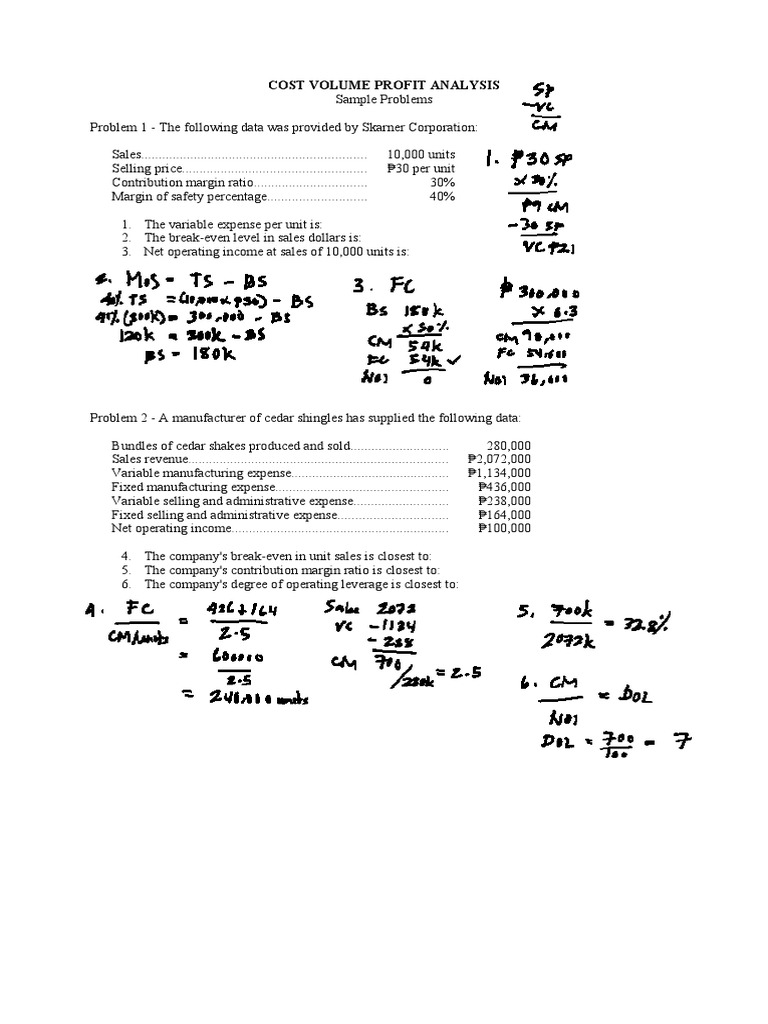 COST VOLUME PROFIT ANALYSIS
Sample Problems
SP
-VC
CM
Problem 1 - The following data was provided by Skarner Corporation:
Sales.................................................................. 10,000 units
Selling price..................................................... ₱30 per unit
Contribution margin ratio................................ 30%
Margin of safety percentage............................ 40%
1. The variable expense per unit is:
2. The break-even level in sales dollars is:
3. Net operating income at sales of 10,000 units is:
1. ₱30 SP
x 30%
₱9 CM
-30 SP
VC ₱21
2. MoS = TS - BS
40% TS = (10,000 x ₱30) - BS
40% (300k) = 300,000 - BS
120k = 300k - BS
BS = 180k
3. FC
BS 180k
x 30%
CM 54k
FC 54k ✓
NOI 0
₱ 300,000
x 0.3
CM 90,000
FC 54,000
NOI 36,000
Problem 2 - A manufacturer of cedar shingles has supplied the following data:
Bundles of cedar shakes produced and sold............................ 280,000
Sales revenue......................................................................... ₱2,072,000
Variable manufacturing expense............................................. ₱1,134,000
Fixed manufacturing expense................................................. ₱436,000
Variable selling and administrative expense........................... ₱238,000
Fixed selling and administrative expense................................ ₱164,000
Net operating income.............................................................. ₱100,000
4. The company's break-even in unit sales is closest to:
5. The company's contribution margin ratio is closest to:
6. The company's degree of operating leverage is closest to:
4. FC
CM/units
= 436+164
2.5
= 600000
2.5
= 240,000 units
Sales 2072
VC -1134
- 238
CM 700
/280k = 2.5
5. 700k
2072k
= 33.8%
6. CM
NOI
= DOL
DOL = 700
100
= 7